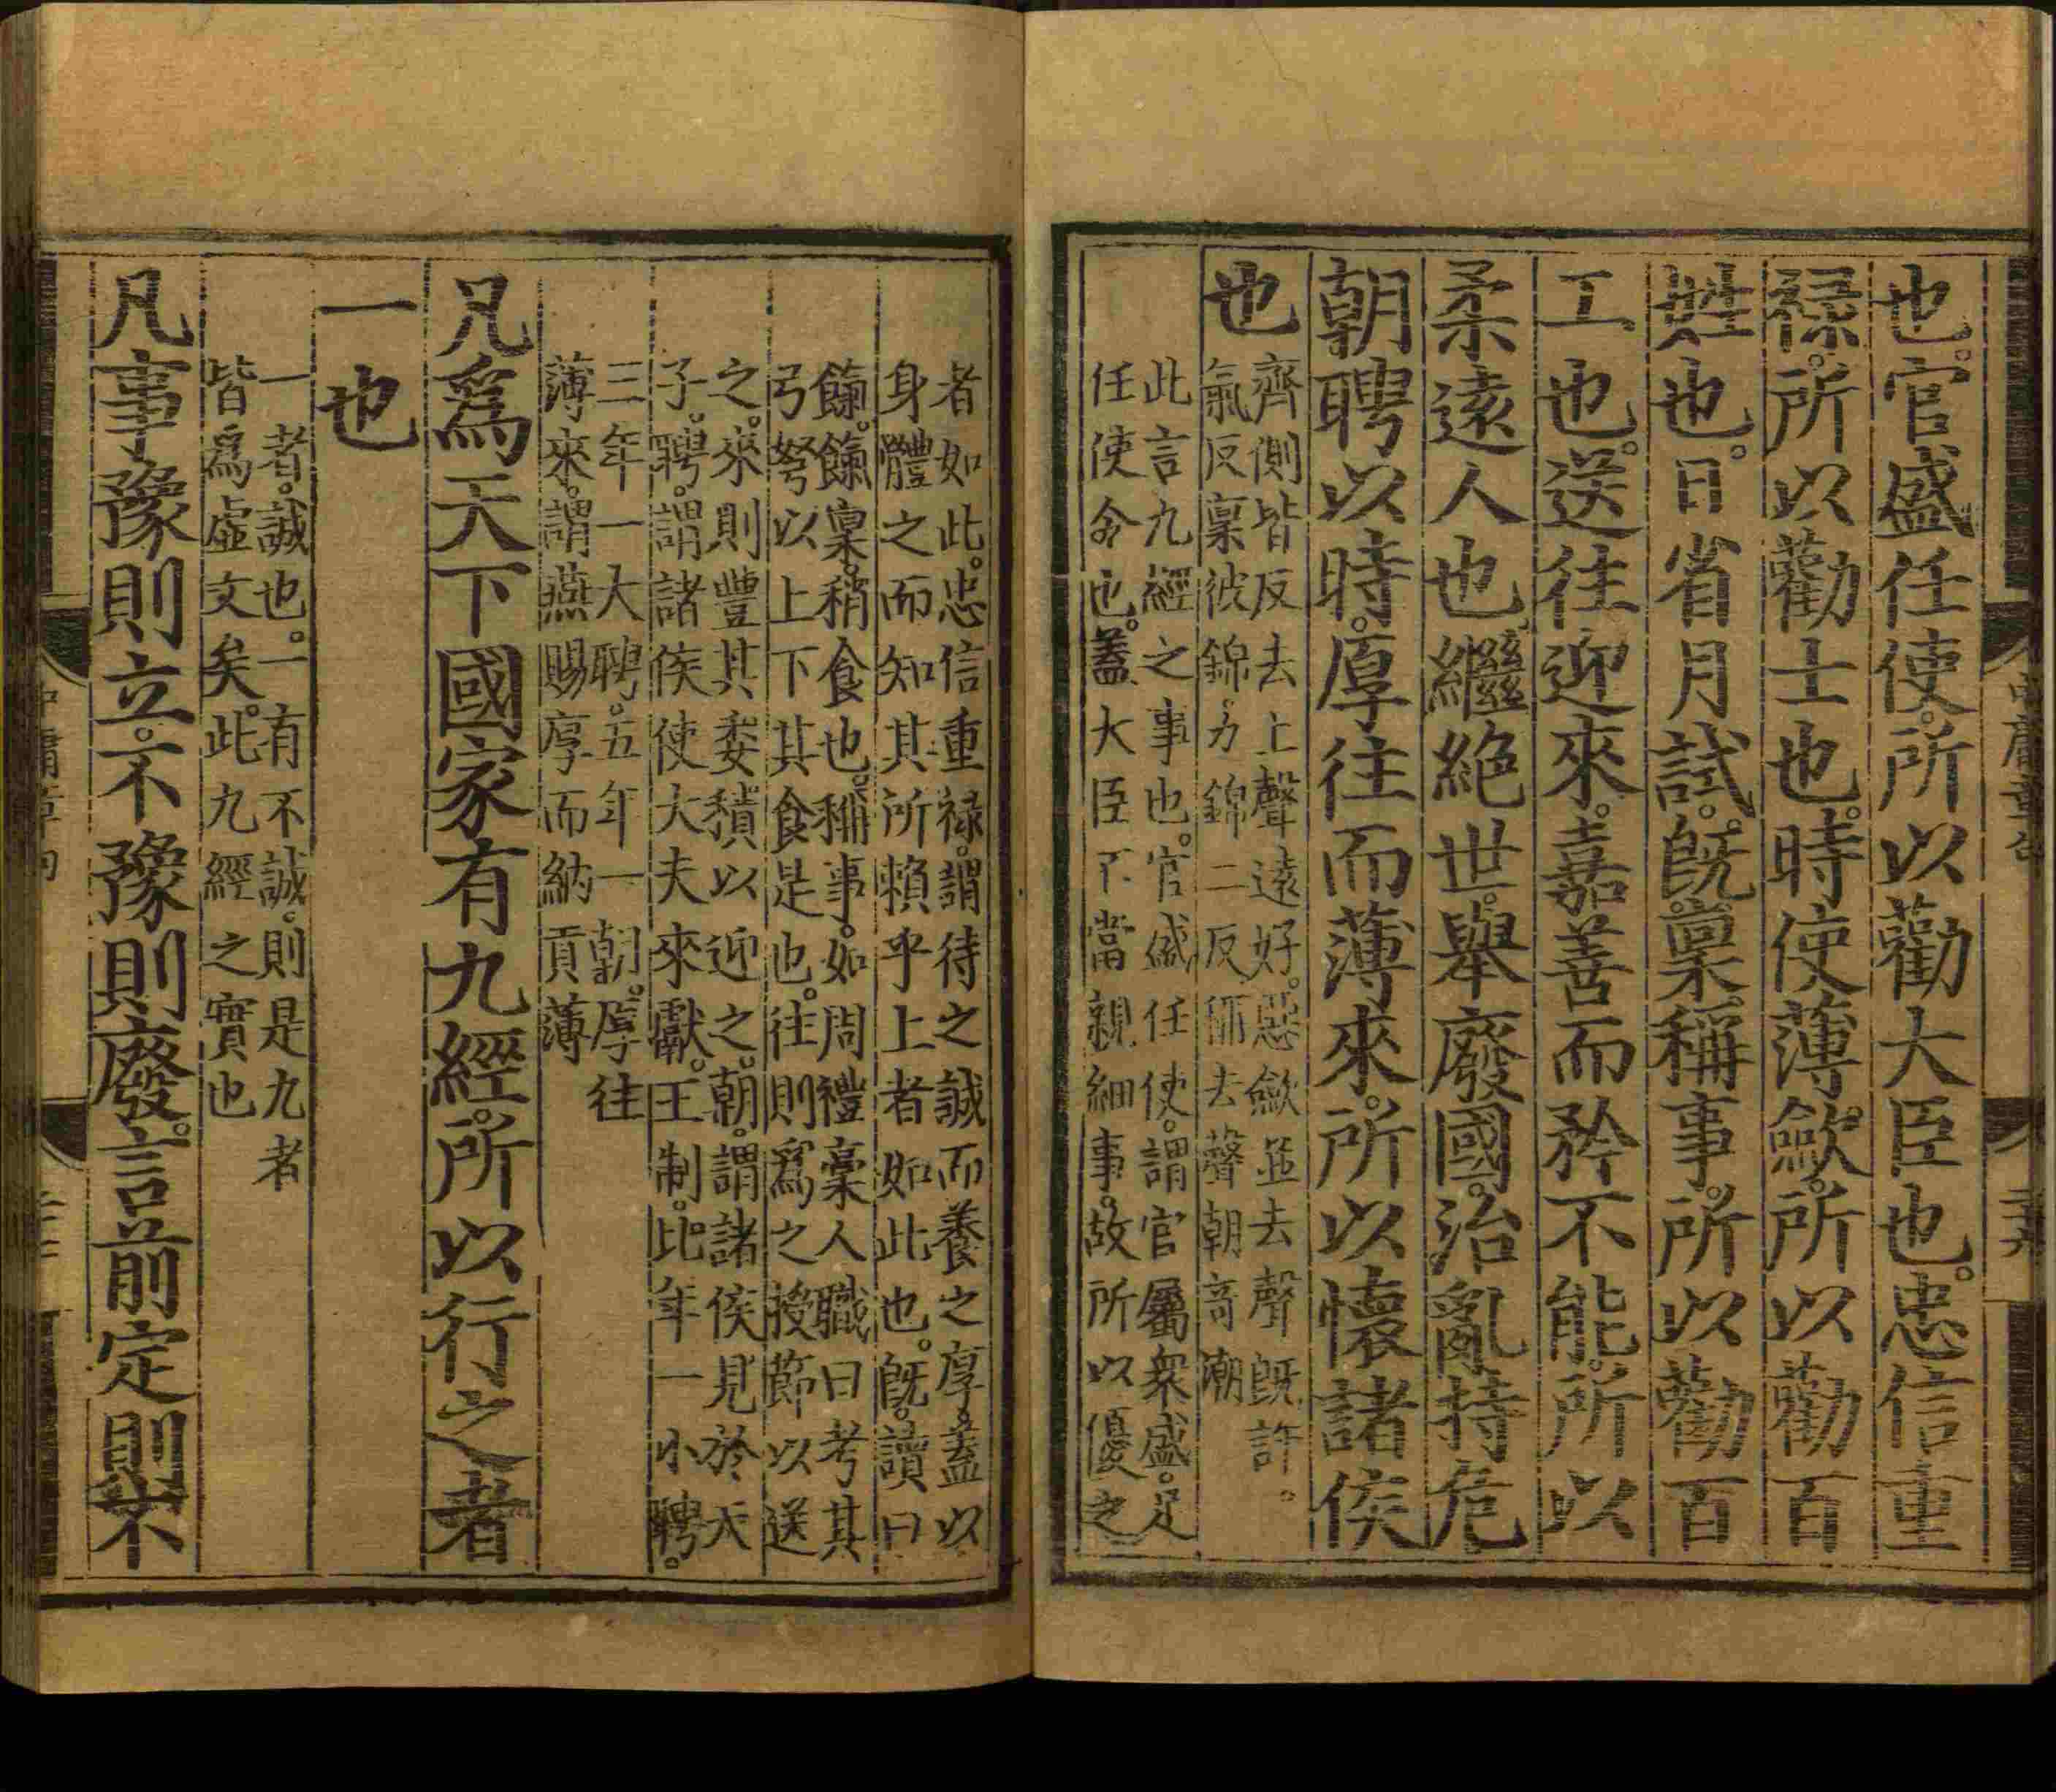 也。官盛任使。所以勸大臣也。忠信重
祿。所以勸士也。時使薄斂。所以勸百
姓也。日省月試。旣稟稱事。所以勸百
工也。送往迎來。嘉善而矜不能。所以
柔遠人也。繼絶世。舉廢國。治亂持危。
朝聘以時。厚往而薄來。所以懷諸侯
也
齊側皆反去上聲遠好。惡斂並去聲旣許。
氣反稟彼錦。力錦二反稱去聲朝音潮
此言九經之事也。官盛任使。謂官屬衆盛。足
任使令也。蓋大臣不當親細事。故所以優之
者如此。忠信重祿。謂待之誠而養之厚。蓋以
身體之而知其所賴乎上者如此也。旣。讀曰
餼。餼稟。稍食也。稱事。如周禮稾人職曰考其
弓弩以上下其食是也。往則爲之授節以送
之。來則豐其委積以迎之。朝。謂諸侯見於天
子。聘。謂諸侯使大夫來獻。王制。比年一小聘。
三年一大聘。五年一朝。厚往
薄來。謂燕賜厚而納貢薄
凡爲天下國家有九經。所以行之者
一也
一者。誠也。一有不誠。則是九者
皆爲虛文矣。此九經之實也
凡事豫則立。不豫則廢。言前定則不